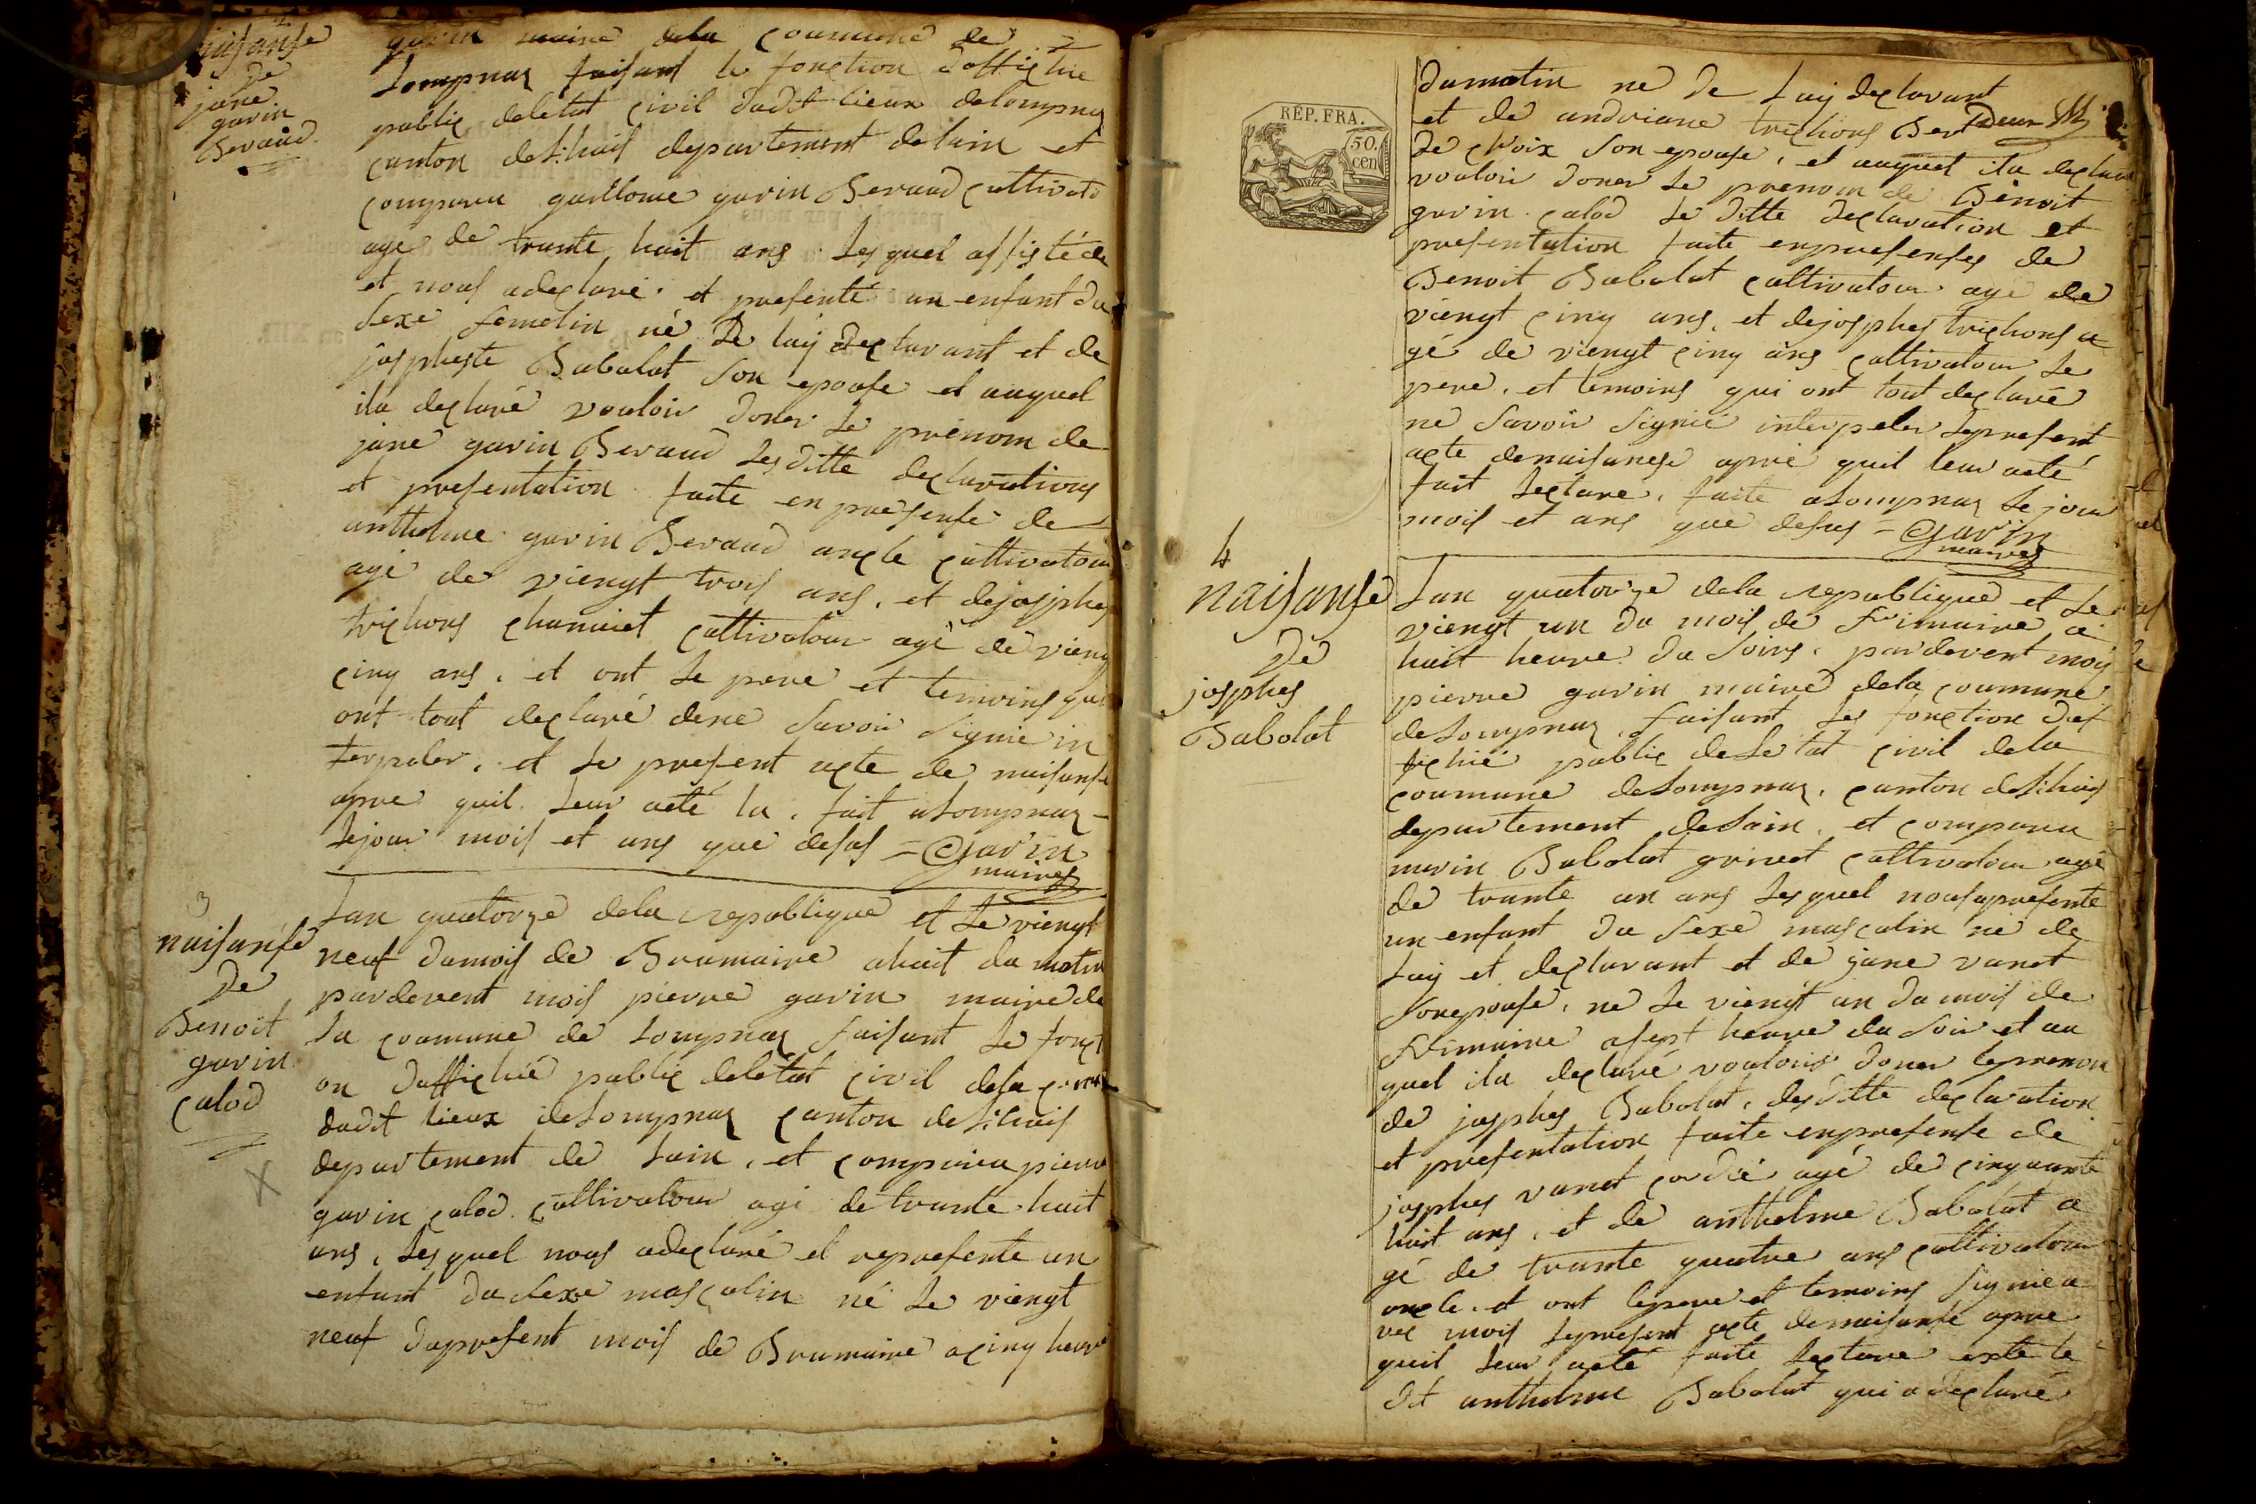 naisanse
De
jane
gavin
Beraud
gavin maire dela Coumune de
Lompnaz faisant le fonction doffichie
public deletat civil dudit lieux delompnaz
canton deSihais departement delain et
comparu guillome gavin Beraud cultivate
agé de trante huit ans Lesquel assisté de
et nous adeclaré et presenté un enfant du
sexe femelin né De luy declarant et de
jospheste Babolat son epouse et auquel
ila declaré vouloir doner Le prenom de
jane gavin Beraud Lesditte declarations
et presentation faite enpresense de
anthelme gavin Beraud oncle cultivatour
agé de viengt trois ans, et dejosphes
trichons chamiet cultivatour agé de vieng
cinq ans, et ont Le pere et temoins qui
ont tout declaré dene savoir signié in
terpeler, et Le present acte de naisanse
apre quil leur aeté lu, fait aLompnaz
Lejour mois et ans que desus = Gavin
maire
3
naisanse
De
Benoit
gavin
calod
Lan quatorze dela republique et Le viengt
neuf dumois de Brumaire ahuit du matin
pardevent mois pierre gavin maire de
La coumune de Lompnaz faisant Le fonct
on daffichié public deletat civil dela coumu
dudit lieux deLompnaz canton deSihais
departement de Lain, et comparu pierre
gavin calod cultivatour agé detrante huit
ans, Lesquel nous adeclaré et represente un
enfant du sexe masculin né Le viengt
neuf dupresent mois de Brumaire acinq heure
REP. FRA.
50.
cen
Deux
dumatin né de Luy declarant
et de andriane trichons Bert
De croix son epouse, et auquel ila declaré
vouloir doner Le prenom de Benoit
gavin calod Le ditte declaration et
presentation faite enpresenses de
Benoit Babolat cultivatour agé de
viengt cinq ans, et dejosphes trichons a
gé de viengt cinq ans cultivatour Le
pere, et temoins qui ont tout declaré
ne savoir signié interpeler Lepresent
acte denaisanse apré quil leur aeté
fait Lecture, faite aLompnaz Le jour
mois et ans que desus = Gavin
maire
4
naisanse
De
josphes
Babolat
Lan quatorze dela republique et Le
viengt un du mois de frimaire a
huit heure du soirs, pardevent moy
pierre gavin maire dela coumune
deLompnaz faisant Les fonction daf
fichié public deLetat civil dela
coumune deLompnaz, canton deSihais
departement deLain, et comparu
marin Babolat grinet cultivatour agé
de trante un ans Lesquel nousapresente
un enfant du sexe masculin né de
Luy et declarant et de jane vanet
sonepouse, né Le viengt un du mois de
frimaire asept heure du soir et au
quel ila declaré vouloir doner leprenon
de josphes Babolat, desditte declaration
et presentation faite enpresense de
josphes vanet cordié agé de cinquante
huit ans, et de anthelme Babolat a
gé de trante quatre ans cultivatour
oncle, et ont lepere et temoins signié a
vec mois Lepresent acte denaisanse apre
quil leur aeté faite Lecture exté le
dit anthelme Babolat qui a declaré